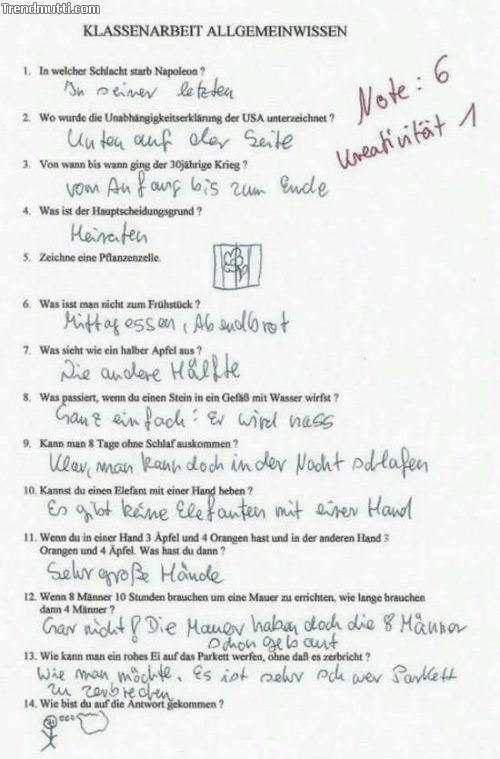 Trendmutti.com
KLASSENARBEIT ALLGEMEINWISSEN
1. In welcher Schlacht starb Napoleon ?
In seiner letzten
Note: 6
2. Wo wurde die Unabhängigkeitserklärung der USA unterzeichnet ?
Unten auf der Seite
Kreativität 1
3. Von wann bis wann ging der 30jährige Krieg ?
vom Anfang bis zum Ende
4. Was ist der Hauptscheidungsgrund ?
Heiraten
5. Zeichne eine Pflanzenzelle.
6. Was isst man nicht zum Frühstück ?
Mittagessen, Abendbrot
7. Was sieht wie ein halber Apfel aus ?
Die andere Hälfte
8. Was passiert, wenn du einen Stein in ein Gefäß mit Wasser wirfst ?
Ganz einfach: Er wird nass
9. Kann man 8 Tage ohne Schlaf auskommen ?
Klar, man kann doch in der Nacht schlafen
10. Kannst du einen Elefant mit einer Hand heben ?
Es gibt keine Elefanten mit einer Hand
11. Wenn du in einer Hand 3 Äpfel und 4 Orangen hast und in der anderen Hand 3
Orangen und 4 Äpfel. Was hast du dann ?
Sehr große Hände
12. Wenn 8 Männer 10 Stunden brauchen um eine Mauer zu errichten, wie lange brauchen
dann 4 Männer ?
Gar nicht! Die Mauer haben doch die 8 Männer
schon gebaut
13. Wie kann man ein rohes Ei auf das Parkett werfen, ohne daß es zerbricht ?
Wie man möchte. Es ist sehr schwer Parkett
zu zerbrechen
14. Wie bist du auf die Antwort gekommen ?